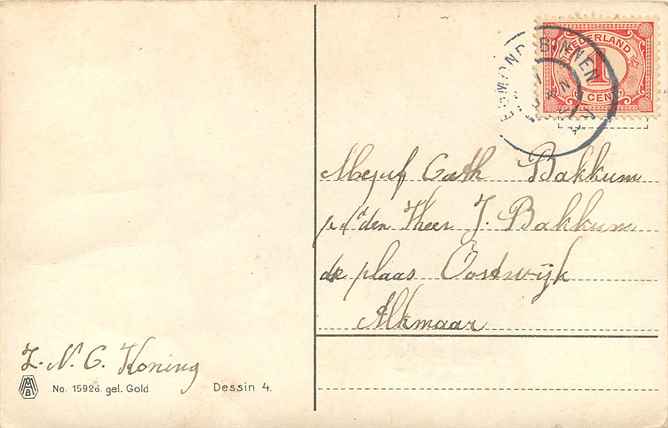 NEDERLAND
1
CENT
EGMOND-BINNEN
Mejuf Cath Bakkum
p/a den Heer J. Bakkum
de plaas Oostwijk
Alkmaar
Z. N. C. Koning
No. 15926. gel. Gold
Dessin 4.